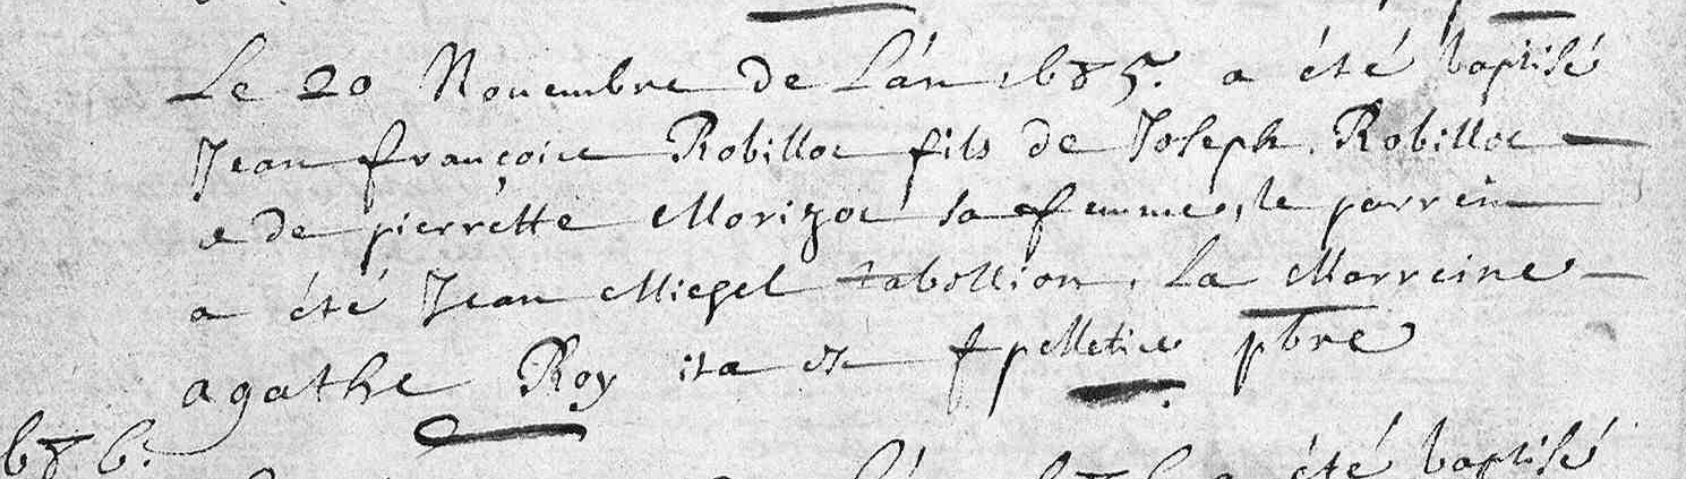 Le 20 Nouembre de L'an 1685. a été baptisé
Jean françois Robillot fils de Joseph Robillot
e de pierrette Morizot sa femme, le parrein
a été Jean Miegel tabellion, La Marreine
agathe Roy ita est f pelletier pbre
686.
été baptisé